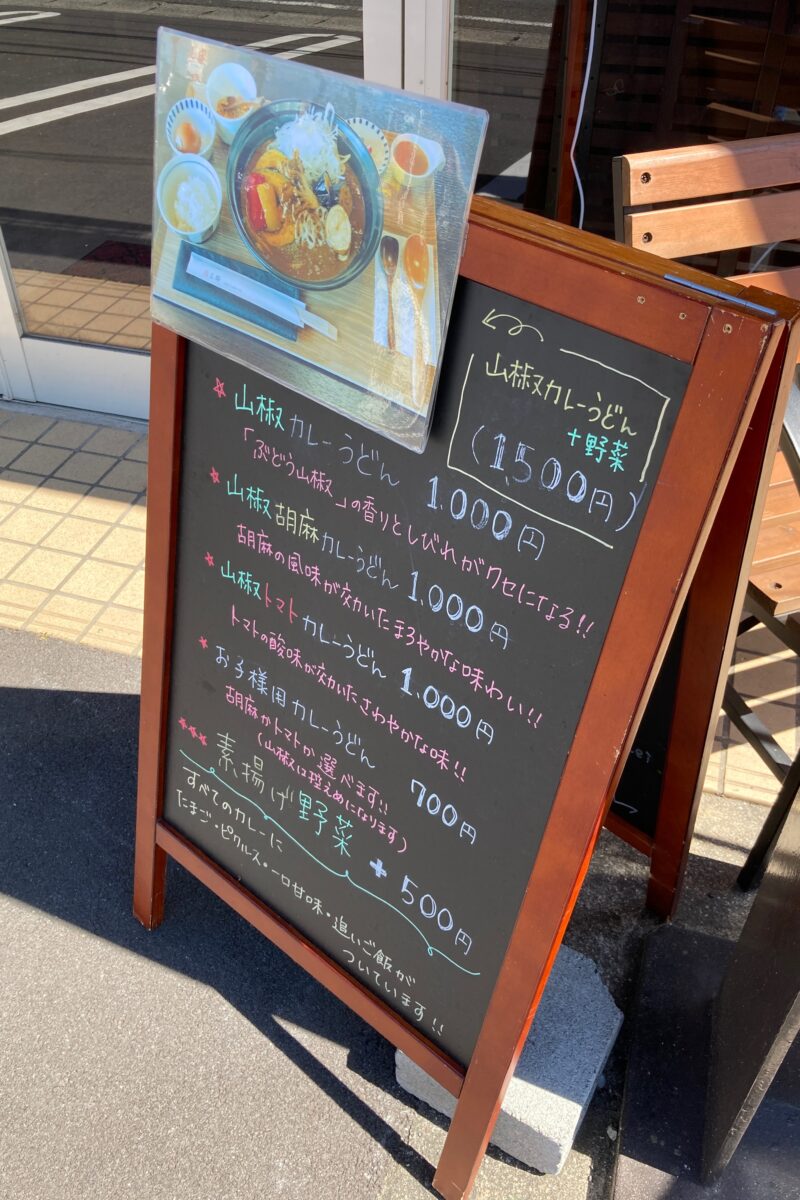 山椒カレーうどん
+野菜
(1,500円)
★山椒カレーうどん 1,000円
「ぶどう山椒」の香りとしびれがクセになる!!
★山椒胡麻カレーうどん 1,000円
胡麻の風味が効いたまろやかな味わい!!
★山椒トマトカレーうどん 1,000円
トマトの酸味が効いたさわやかな味!!
★お子様用カレーうどん 700円
胡麻かトマトか選べます!!
(山椒は控えめになります)
★★★素揚げ野菜 + 500円
すべてのカレーに
たまご・ピクルス・一口甘味・追いご飯が
ついています!!